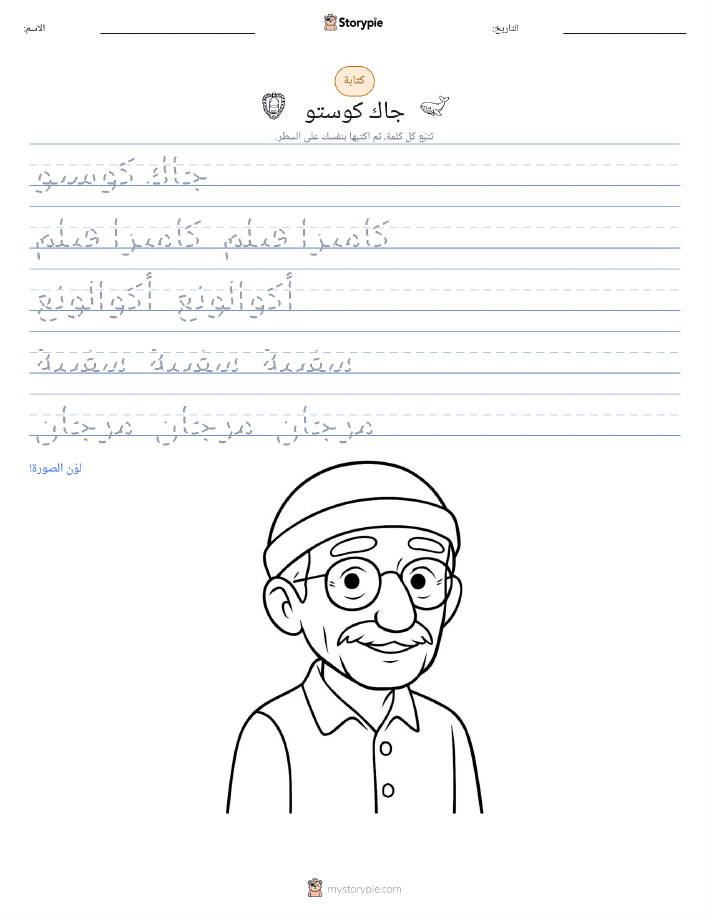 الاسم:
Storypie
التاريخ:
كتابة
جاك كوستو
تتبّع كل كلمة، ثم اكتبها بنفسك على السطر.
جاك كوستو
كاميرا فيلم كاميرا فيلم
أكوالونغ أكوالونغ
سفينة سفينة سفينة
مرجان مرجان مرجان
لوّن الصورة!
mystorypie.com